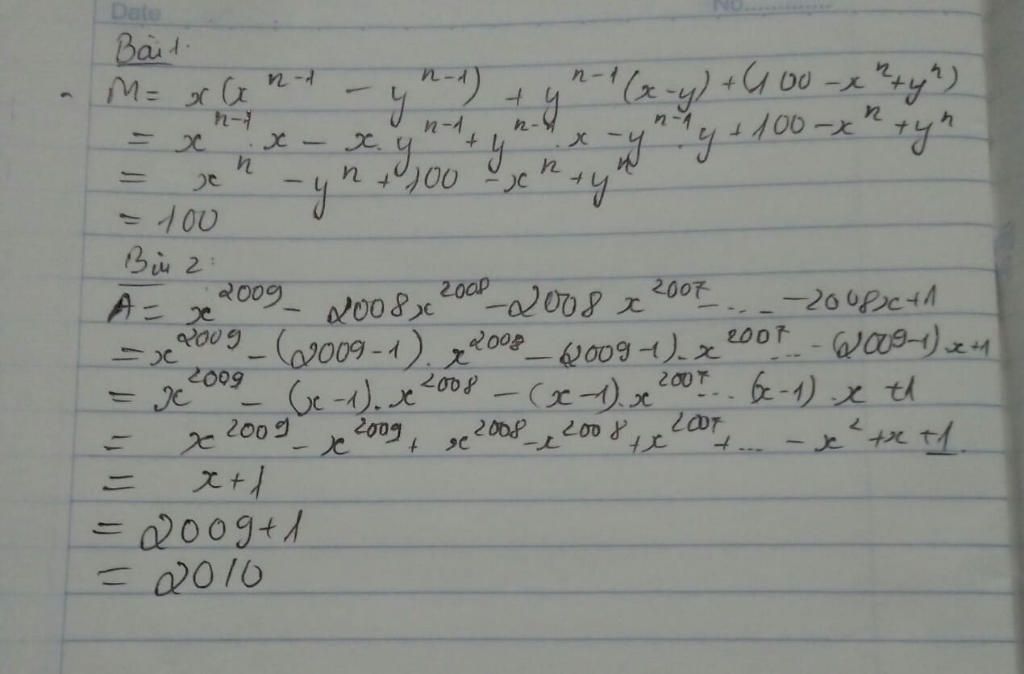 Date No..............
Bài 1.
- M = x(x^{n-1} - y^{n-1}) + y^{n-1}(x-y) + (100 - x^n + y^n)
= x^{n-1}.x - x.y^{n-1} + y^{n-1}.x - y^{n-1}.y + 100 - x^n + y^n
= x^n - y^n + 100 - x^n + y^n
= 100
Bài 2:
A = x^{2009} - 2008x^{2008} - 2008x^{2007} - ... - 2008x + 1
= x^{2009} - (2009-1).x^{2008} - (2009-1).x^{2007} ... - (2009-1)x + 1
= x^{2009} - (x-1).x^{2008} - (x-1).x^{2007} - ... (x-1).x + 1
= x^{2009} - x^{2009} + x^{2008} - x^{2008} + x^{2007} + ... - x^2 + x + 1.
= x + 1
= 2009 + 1
= 2010